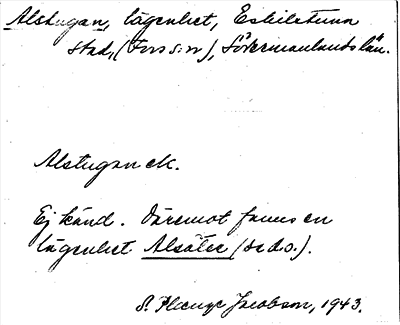 Alstugan, lägenhet, Eskilstuna
stad, (Fors s:n), Södermanlands län.
Alstugan ek.
Ej känd. Däremot fanns en
lägenhet Alsäter (se d.o.).
S. Plenge Jacobson, 1943.